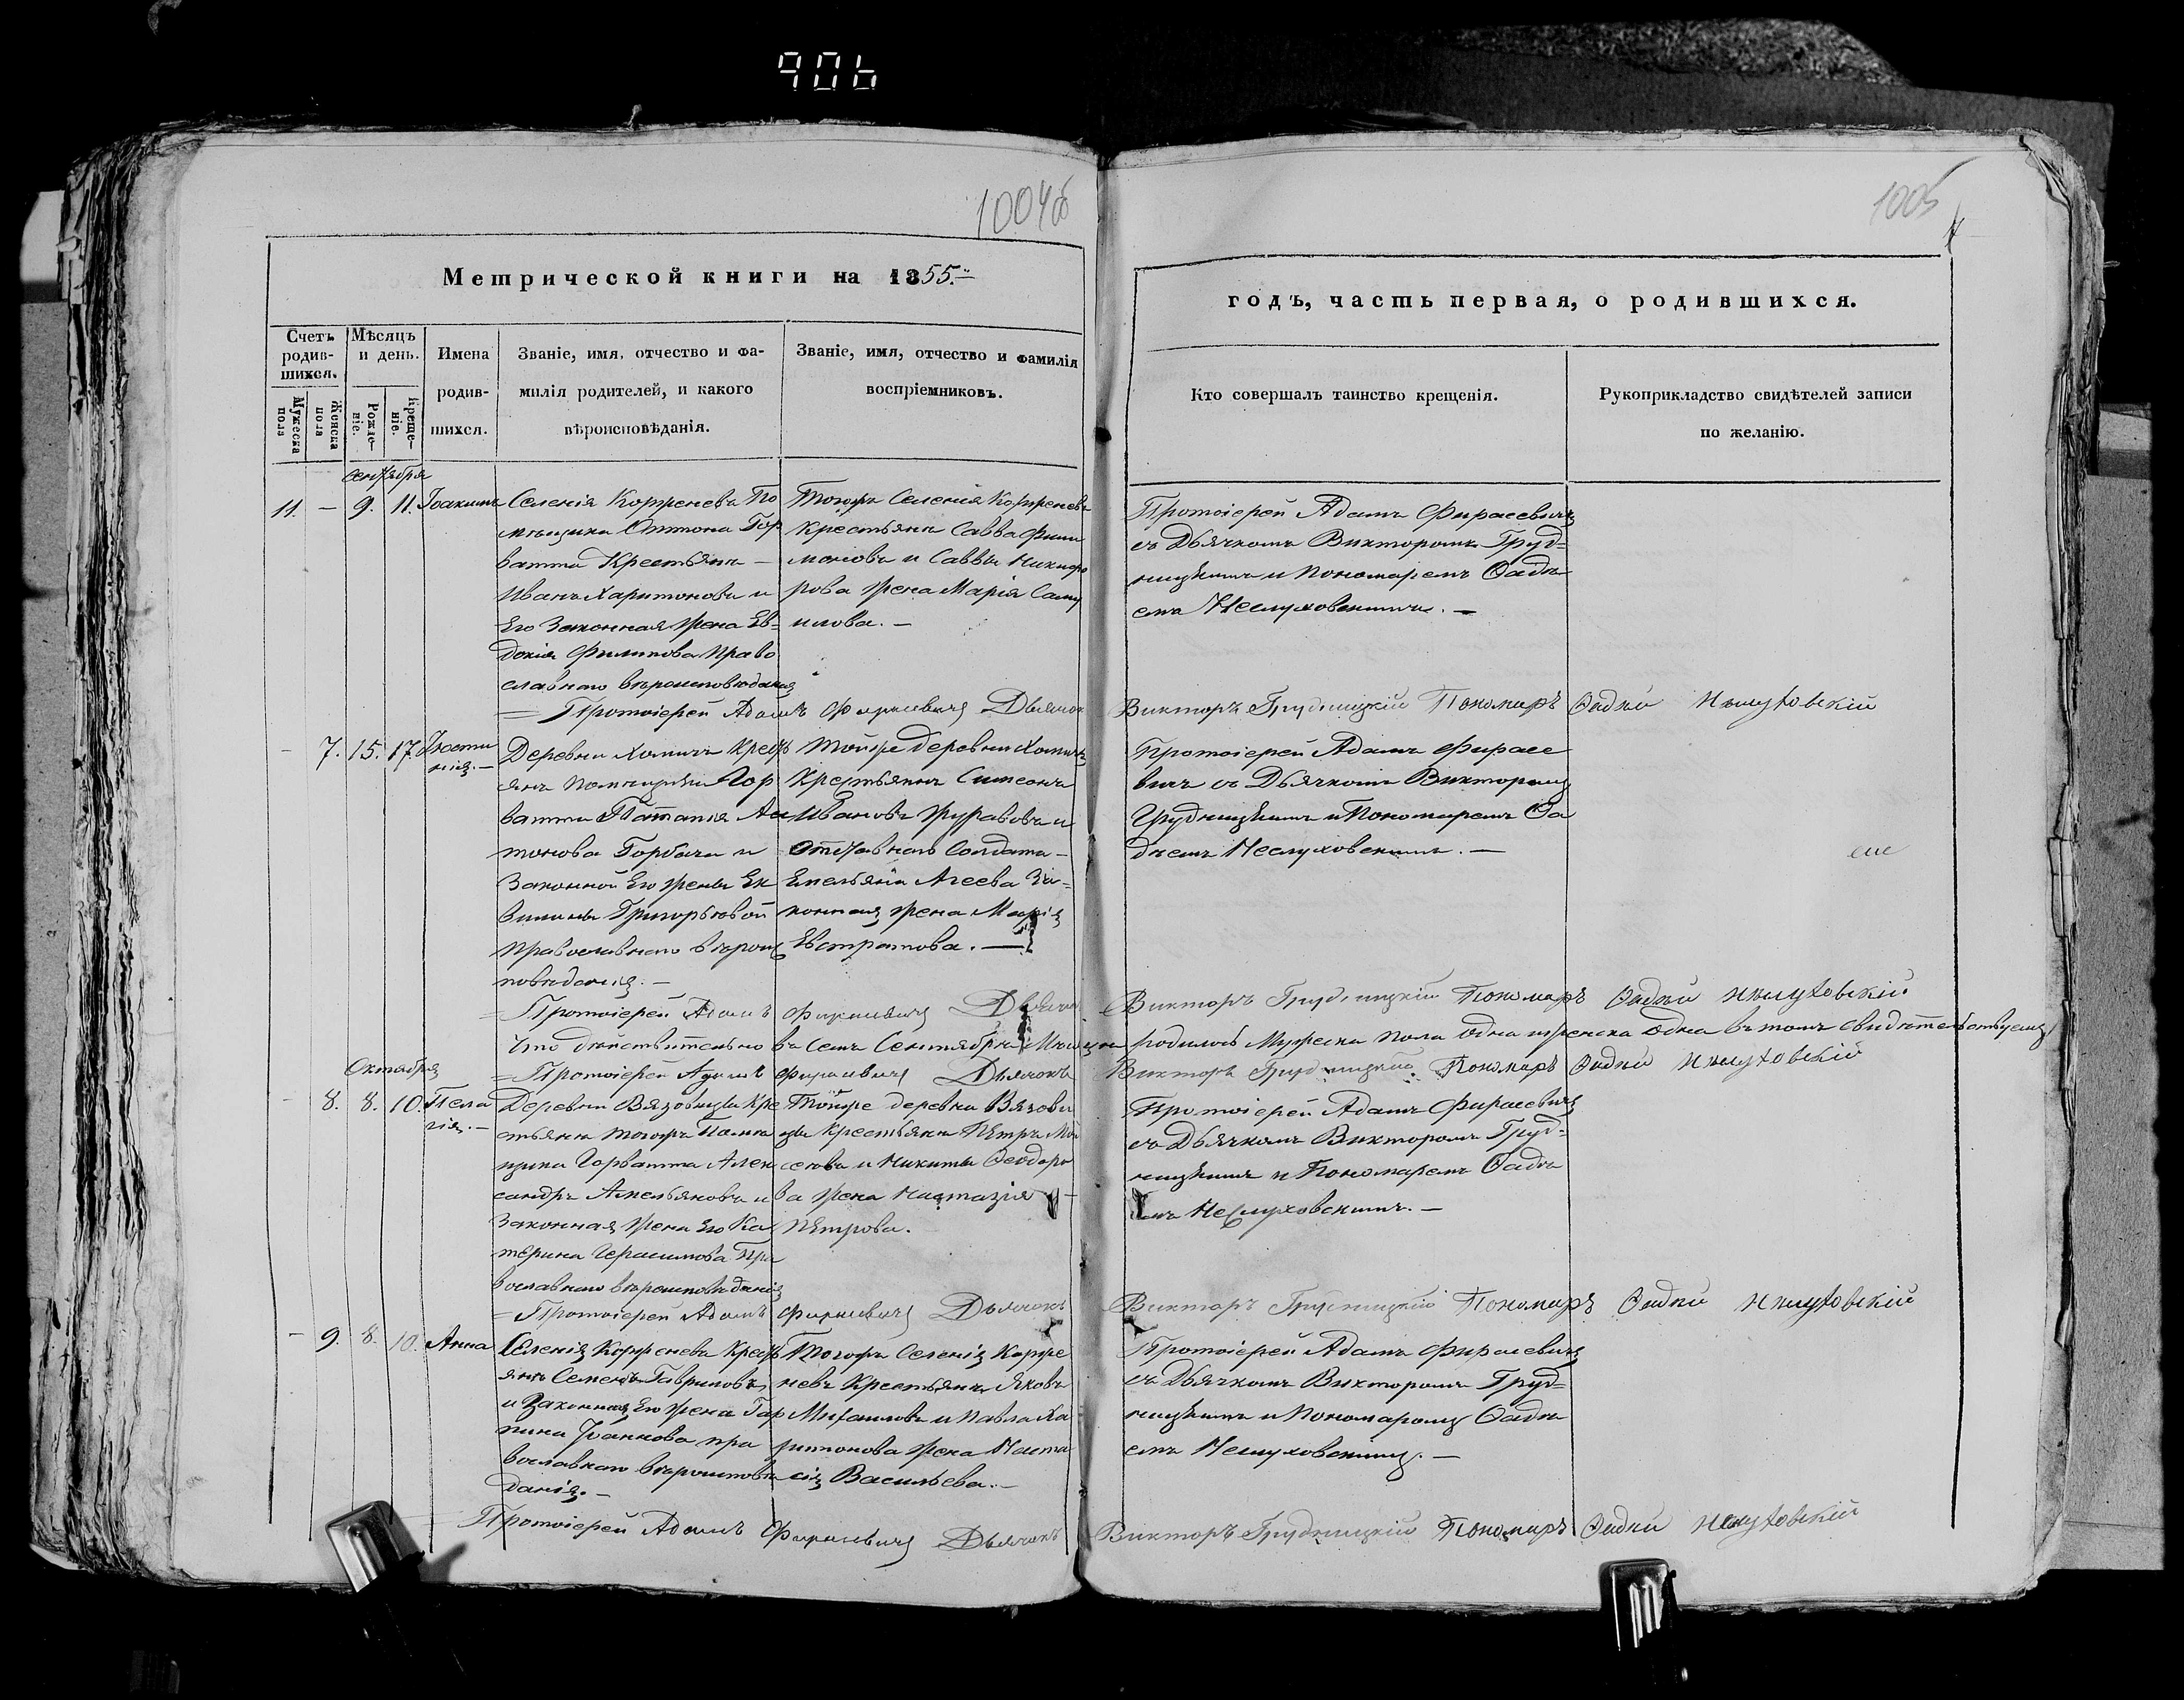 906
1004об
1005
Метрической книги на 1855.
годъ, часть первая, о родившихся.
Счетъ родив-шихся.
Мужеска пола
Женска пола
Мѣсяцъ и день.
Рожде-ніе.
Креще-ніе.
Имена
родив-
шихся.
Званіе, имя, отчество и фа-
милія родителей, и какого
вѣроисповѣданія.
Званіе, имя, отчество и фамилія
воспріемниковъ.
Кто совершалъ таинство крещенія.
Рукоприкладство свидѣтелей записи
по желанію.
сентября
11. — 9. 11. Іоакимъ
Селенія Корженева По
мѣщика Оттона Гор
ватта Крестьянъ —
Иванъ Харитоновъ и
Его Законная жена Ев=
докія Филипова Право
славнаго вѣроисповѣданія
Тогожъ Селенія Корженева
Крестьянъ Савва Фили
моновъ и Саввы Никифо
рова жена Марія Саму
илова. —
Протоіерей Адамъ Фирасевичъ
съ Дьячкомъ Викторомъ Груд=
ницкимъ и Пономаремъ Фадѣ
емъ Неслуховскимъ. —
= Протоіерей Адамъ Фирасевичъ Дьячокъ Викторъ Грудницкій Пономарь Фадѣй Неслуховскій
— 7. 15. 17. Іюсти
нія. —
Деревни Хомичъ Крест
янъ Помѣщика Гор
ватта Ан
тонова Горбача и
Законной Его жены Ек
Григорьевой
Православнаго вѣроис
повѣданія. —
Тойже деревни Хомичъ
Крестьянинъ Симеонъ
Ивановъ Журавовъ и
Отставнаго Солдата —
Емельяна Агеева За=
конная жена Марія
Евстратова. —
Протоіерей Адамъ Фирасе
вичъ съ Дьячкомъ Викторомъ
Грудницкимъ и Пономаремъ Фа
дѣемъ Неслуховскимъ. —
= Протоіерей Адамъ Фирасевичъ Дьячокъ Викторъ Грудницкій Пономарь Фадѣй Неслуховскій
Что дѣйствительно въ семъ Сентябрѣ Мѣсяцѣ родилось Мужеска пола одна и женска одна въ томъ свидѣтельствуемъ
= Протоіерей Адамъ Фирасевичъ Дьячокъ Викторъ Грудницкій Пономарь Фадѣй Неслуховскій
Октября
— 8. 8. 10. Пела
гія. —
Деревни Вязовицы Кре
стьянъ тогожъ Помѣ
щика Горватта Алек
сандръ Амельяновъ и
Законная жена Его Ка
терина Герасимова Пра
вославнаго вѣроисповѣданія
Тойже деревни Вязови
цы Крестьянъ Петръ Мои
сеевъ и Никиты Феодоро
ва жена Настазія —
Петрова.
Протоіерей Адамъ Фирасевичъ
съ Дьячкомъ Викторомъ Груд=
ницкимъ и Пономаремъ Фадѣ
емъ Неслуховскимъ. —
= Протоіерей Адамъ Фирасевичъ Дьячокъ Викторъ Грудницкій Пономарь Фадѣй Неслуховскій
— 9. 8. 10. Анна
Селенія Корженева Крест
янъ Семенъ Гавриловъ
и Законная Его жена Гар
пина Іванова пра
вославнаго вѣроисповѣ
данія. —
Тогожъ Селенія Корже
нева Крестьянъ Яковъ
Михаиловъ и Павла Ха
ритонова жена Наста
сія Васильева. —
Протоіерей Адамъ Фирасевичъ
съ Дьячкомъ Викторомъ Груд=
ницкимъ и Пономаремъ Фадѣ
емъ Неслуховскимъ. —
Протоіерей Адамъ Фирасевичъ Дьячокъ Викторъ Грудницкій Пономарь Фадѣй Неслуховскій